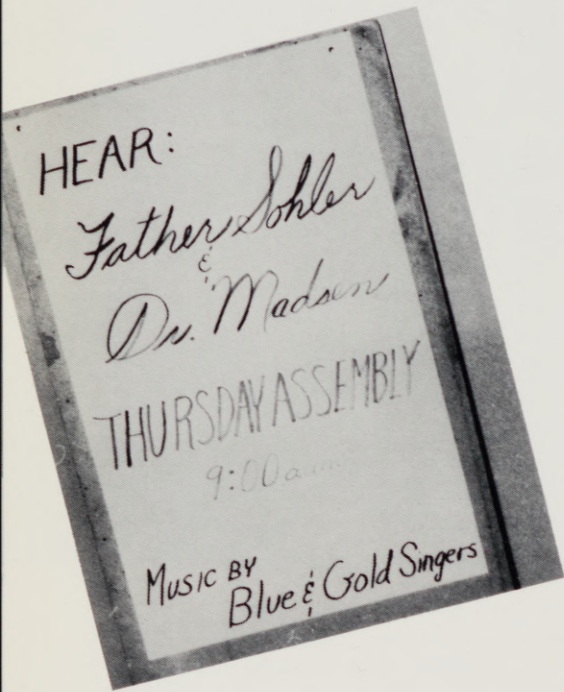 HEAR:
Father Sohler
&
Dr. Madsen
THURSDAY ASSEMBLY
9:00 a.m.
MUSIC BY
Blue & Gold Singers